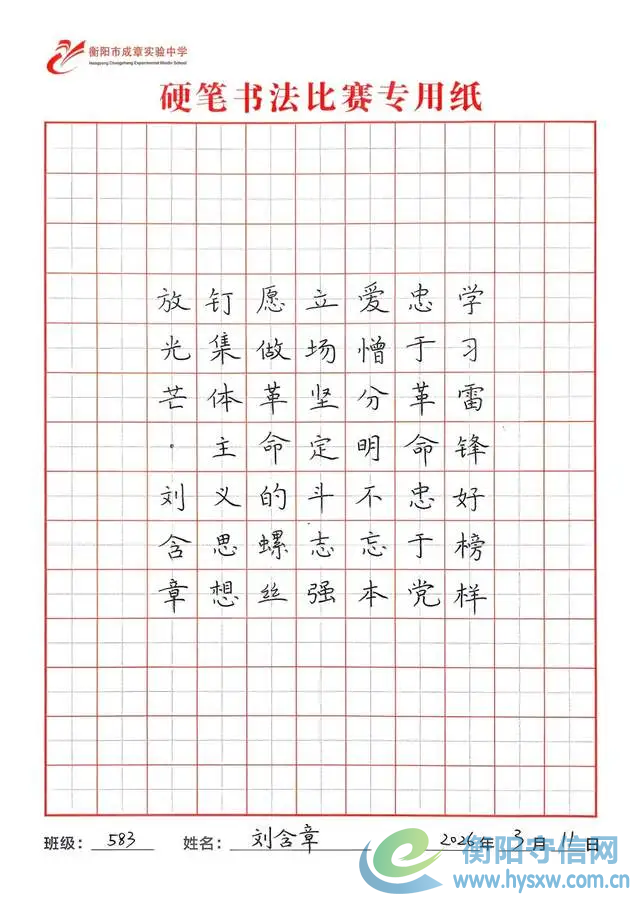 衡阳市成章实验中学
Hengyang Chengzhang Experimental Middle School
硬笔书法比赛专用纸
学习雷锋好榜样
忠于革命忠于党
爱憎分明不忘本
立场坚定斗志强
愿做革命的螺丝
钉集体主义思想
放光芒·刘含章
班级：583 姓名：刘含章 2026年3月11日
衡阳守信网
www.hysxw.com.cn